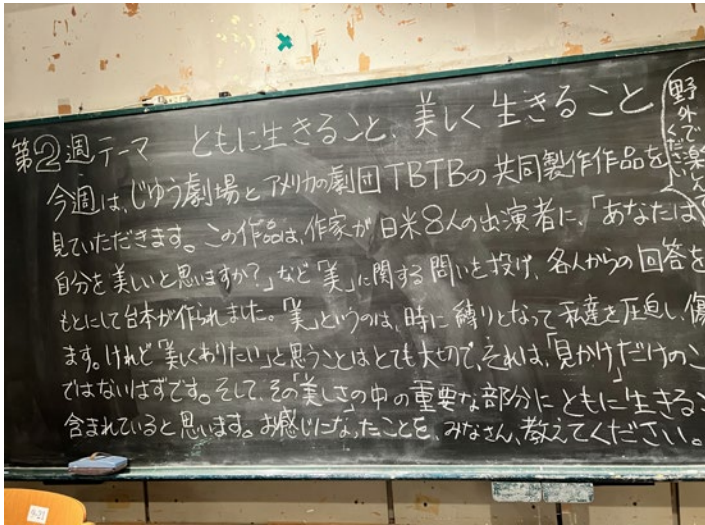 第2週テーマ ともに生きること、美しく生きること
野外で楽しんで
ください
今週は、じゆう劇場とアメリカの劇団TBTBの共同製作作品を
見ていただきます。この作品は、作家が日米8人の出演者に、「あなたは
自分を美しいと思いますか?」など「美」に関する問いを投げ、各人からの回答を
もとにして台本が作られました。「美」というのは、時に縛りとなって私達を圧迫し、傷
ます。けれど「美しくありたい」と思うことはとても大切で、それは、「見かけ」だけのこ
ではないはずです。そして、その「美しさ」の中の重要な部分にともに生きるこ
含まれていると思います。お感じになったことを、みなさん、教えてください。
9-21